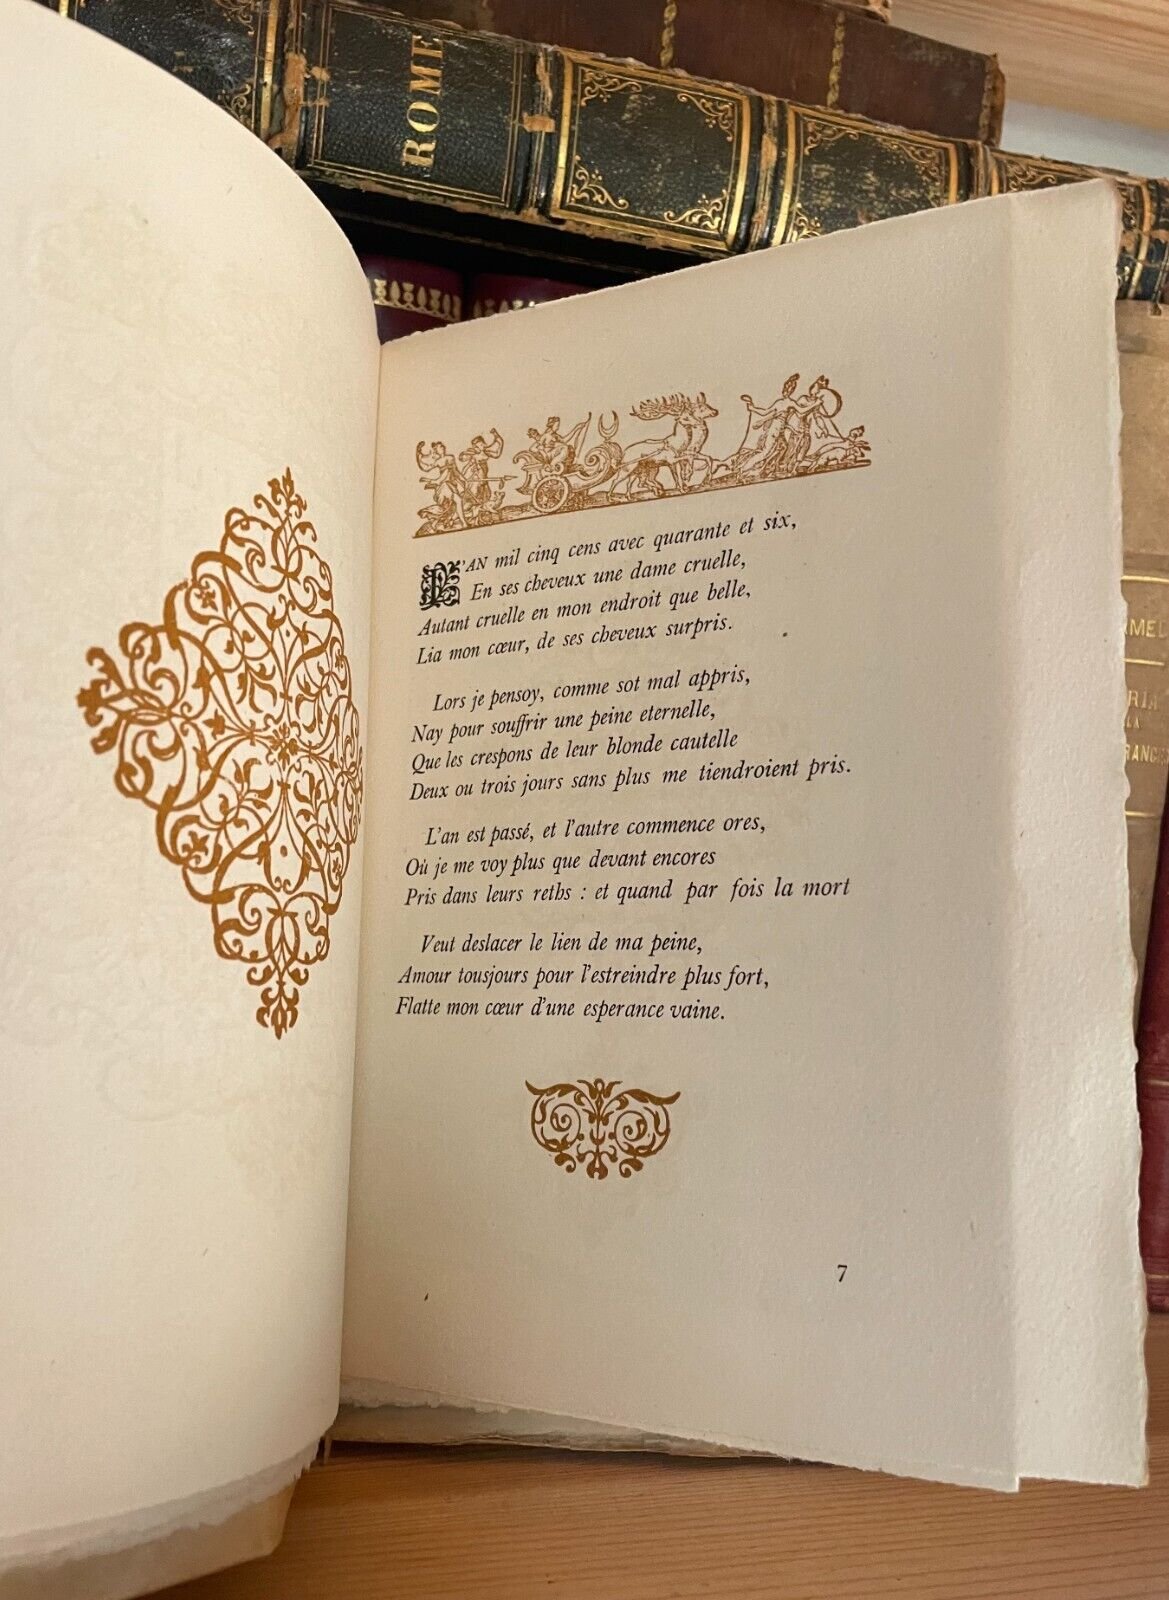 ROME
L'AN mil cinq cens avec quarante et six,
En ses cheveux une dame cruelle,
Autant cruelle en mon endroit que belle,
Lia mon cœur, de ses cheveux surpris.
Lors je pensoy, comme sot mal appris,
Nay pour souffrir une peine eternelle,
Que les crespons de leur blonde cautelle
Deux ou trois jours sans plus me tiendroient pris.
L'an est passé, et l'autre commence ores,
Où je me voy plus que devant encores
Pris dans leurs reths : et quand par fois la mort
Veut deslacer le lien de ma peine,
Amour tousjours pour l'estreindre plus fort,
Flatte mon cœur d'une esperance vaine.
7
LA